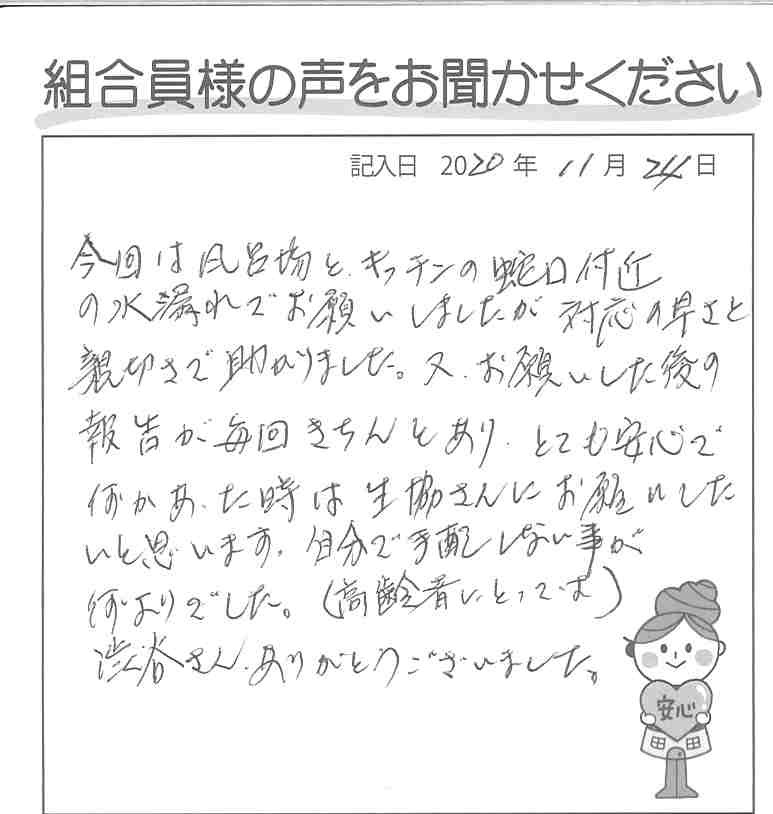 組合員様の声をお聞かせください
記入日 2020年 11月 24日
今回は風呂場と、キッチンの蛇口付近
の水漏れでお願いしましたが対応の早さと
親切さで助かりました。又、お願いした後の
報告が毎回きちんとあり、とても安心で
何かあった時は生協さんにお願いした
いと思います。自分で手配しない事が
何よりでした。(高齢者にとっては)
渋谷さん、ありがとうございました。
安心